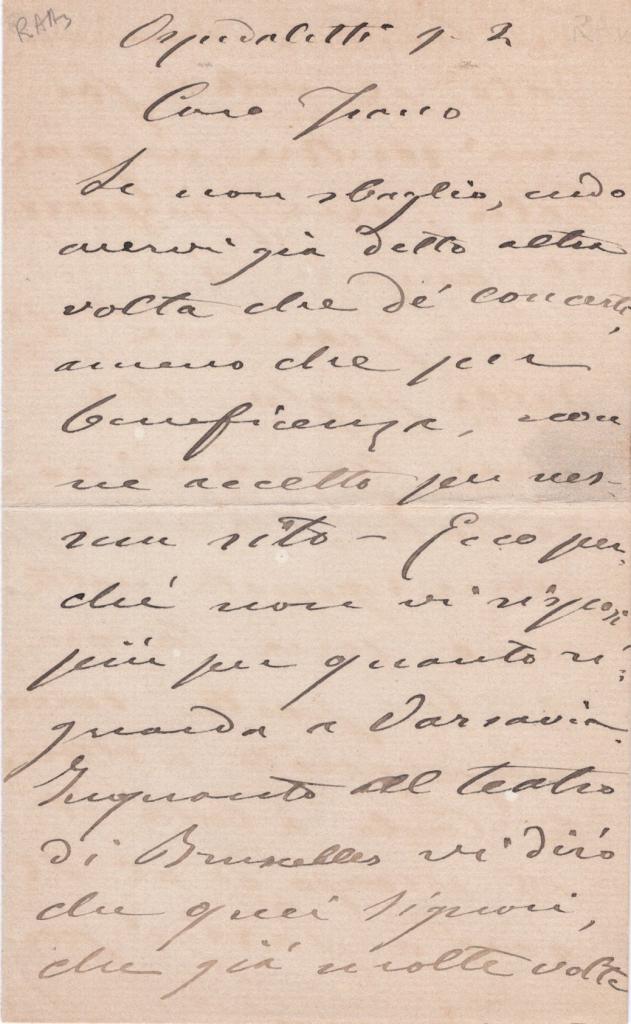 Ospedaletti 9. 2
Caro
Se non sbaglio, credo
avervi già detto altra
volta che dé concerti,
ameno che per
beneficenza, non
ne accetto per nes-
sun sito - Ecco per-
ché non vi risposi
più per quanto ri-
guarda a Varsavia.
Inquanto al teatro
di Bruxelles vi dirò
che quei signori,
che già molte volte